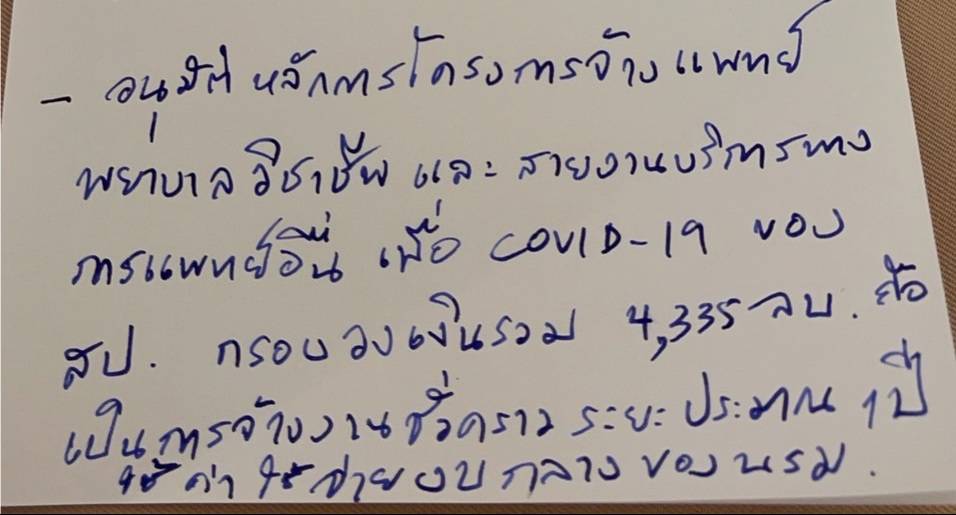 - อนุมัติ หลักการโครงการจ้างแพทย์
พยาบาลวิชาชีพ และ สายงานบริการทาง
การแพทย์อื่น เพื่อ COVID-19 ของ
สป. กรอบวงเงินรวม 4,335 ลบ. คือ
เป็นการจ้างงานชั่วคราว ระยะประมาณ 1 ปี
ใช้ค่าใช้จ่ายงบกลางของนรม.